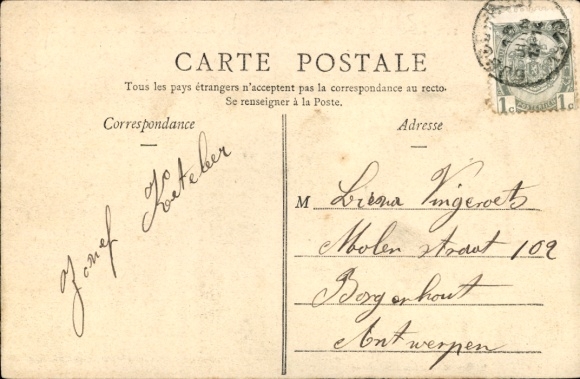 CARTE POSTALE
Tous les pays étrangers n'acceptent pas la correspondance au recto.
Se renseigner à la Poste.
Correspondance
Adresse
Jozef Keteler
M Liesna Vingeroets
Molen straat 102
Borgerhout
Antwerpen
1c 1c